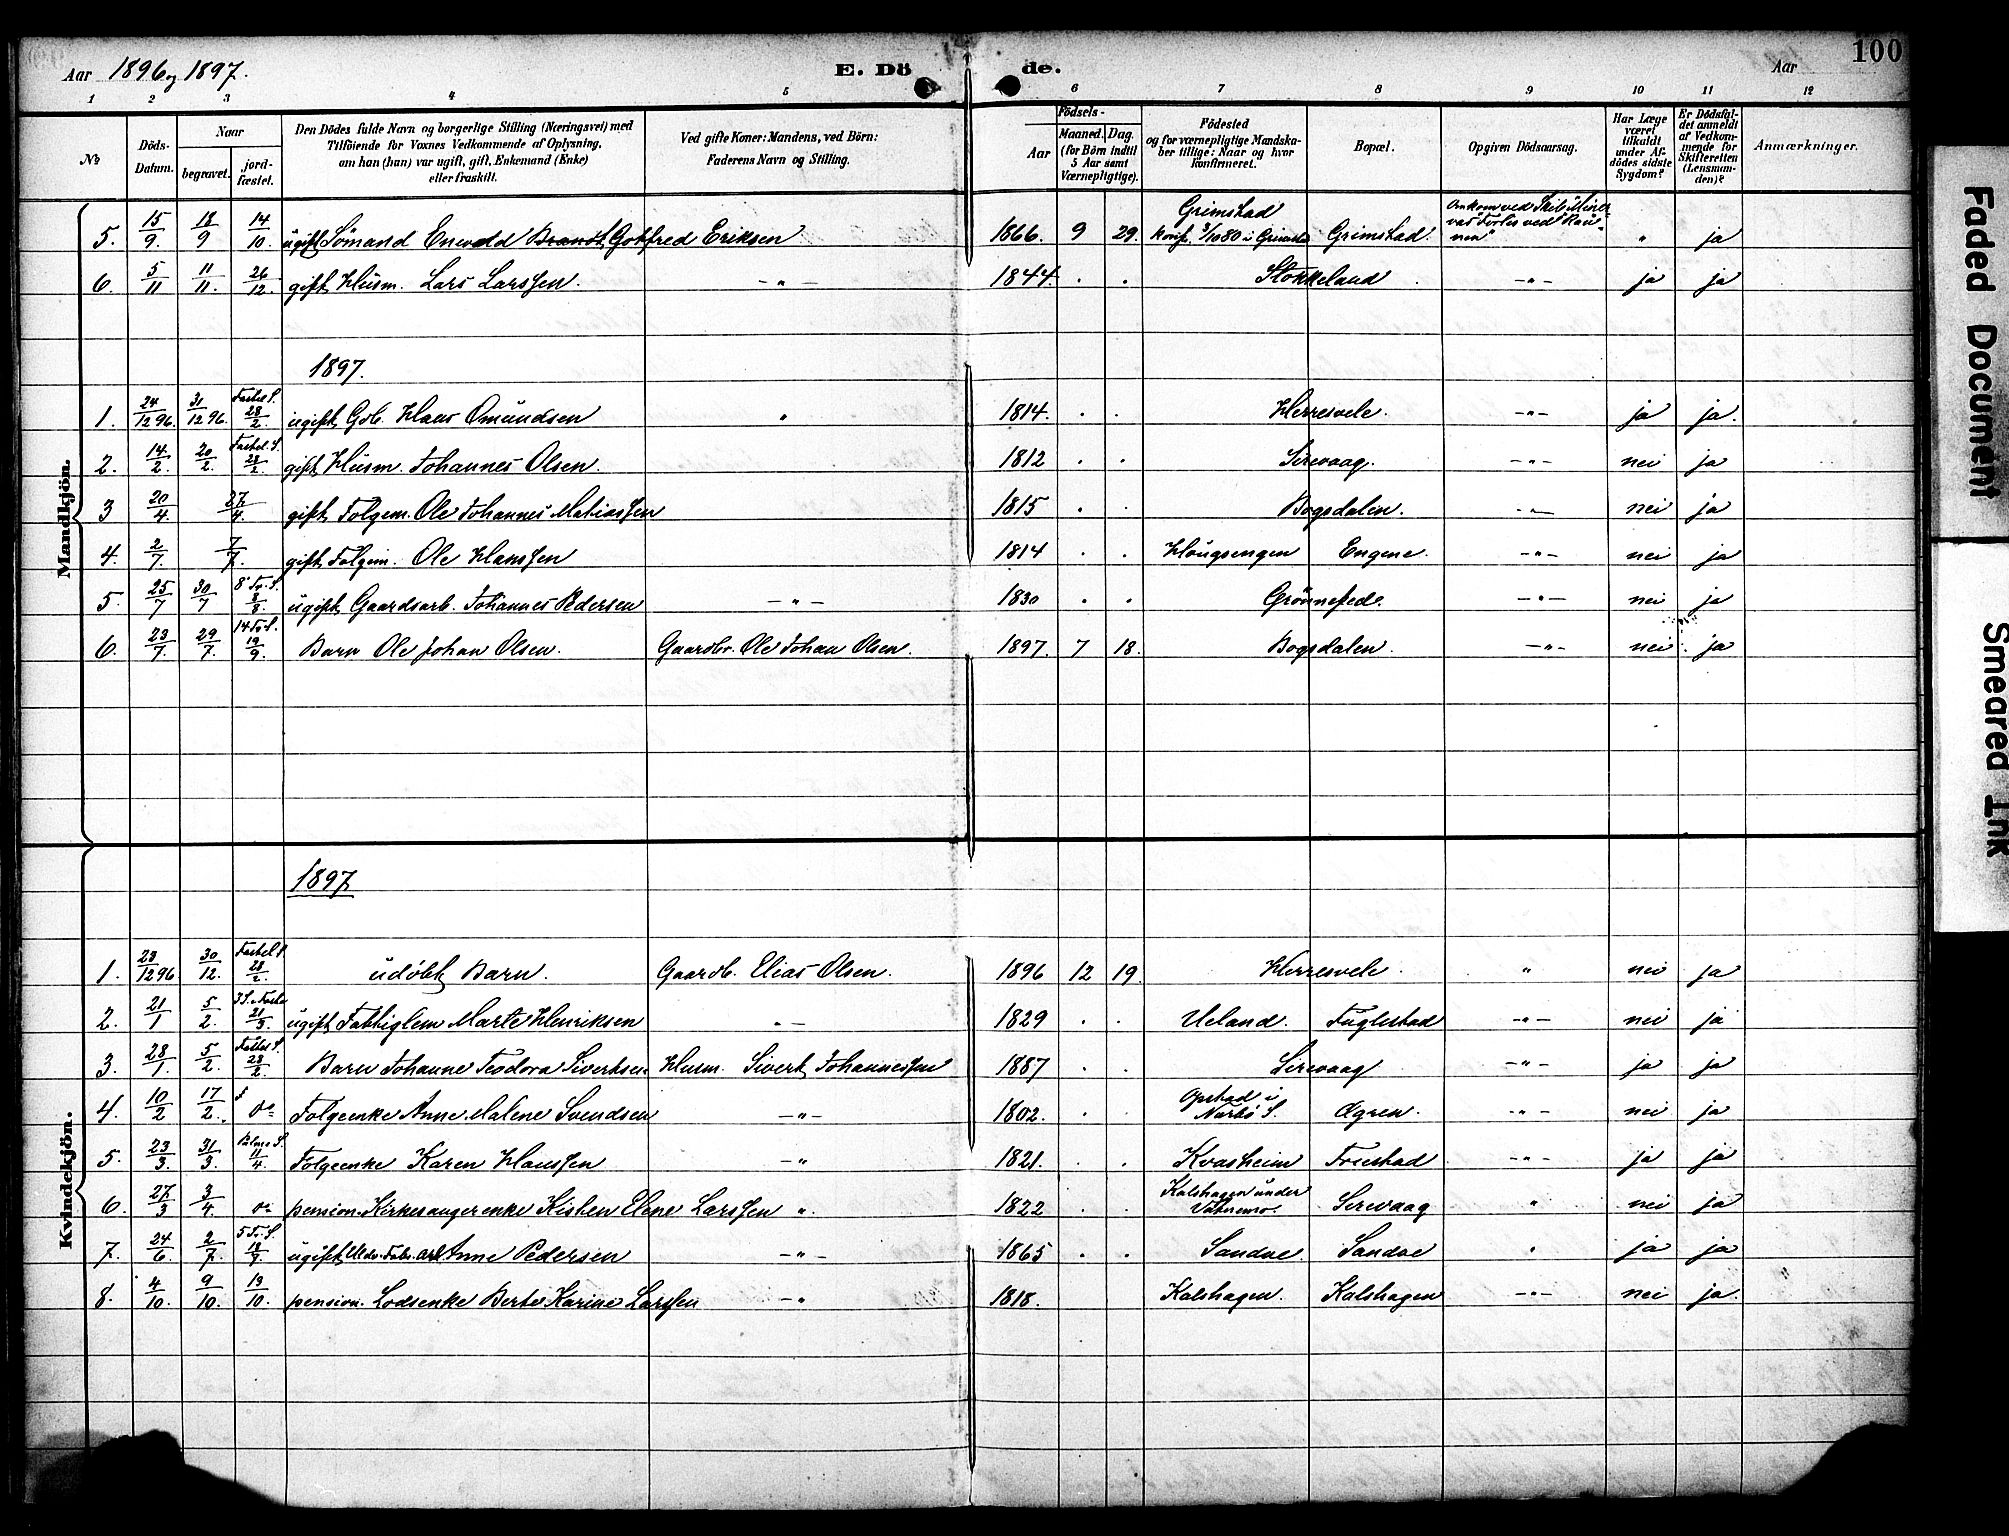 100
Aar 1896 og 1897.
E. Döde.
Aar
1 2 3 4 5 6 7 8 9 10 11 12
No
Döds-Datum.
Naar
begravet.
jordfæstet.
Den Dödes fulde Navn og borgerlige Stilling (Næringsvei) med
Tilföiende for Voxnes Vedkommende af Oplysning,
om han (hun) var ugift, gift, Enkemand (Enke)
eller fraskilt.
Ved gifte Koner: Mandens, ved Börn:
Faderens Navn og Stilling.
Födsels-
Aar
Maaned. Dag.
(for Börn indtil
5 Aar samt
Værnepligtige).
Födested
og for værnepligtige Mandskaber tillige: Naar og hvor
konfirmeret.
Bopæl.
Opgiven Dödsaarsag.
Har Læge
været
tilkaldt
under Afdödes sidste
Sygdom?
Er Dödsfaldet anmeldt
af Vedkommende for
Skifteretten
(Lensmanden)?
Anmærkninger.
Mandkjön.
5. 15/9. 18/9 14/10. ugift Sömand Enevald Brandt Gotfred Eriksen " 1866. 9 29. Grimstad konf. 3/10 80 i Grimstad Grimstad. Omkom ved Skib " ja
6. 5/11 11/11. 26/12 gift Husm. Lars Larssen. -"- 1844. . . Stokkeland -"- ja ja
1897.
1. 24/12 96. 31/12 96. Fastel. S. 28/2. ugift Gdb. Hans Omundsen " 1814. . . Herresvele. -"- ja ja.
2. 14/2. 20/2. Fastel. S. 28/2 gift Husm. Johannes Olsen. 1812 . . Sirevaag. -"- nei ja
3 20/4. 27/4. gift Folgem. Ole Johannes Matiassen 1815 . . Bogsdalen. -"- nei ja
4. 2/7. 7/7. gift Folgem. Ole Hanssen 1814 . . Haugsengen Engene. -"- nei ja
5. 25/7 30/7 8 Tr. S. 8/8. ugift Gaardsarb. Johannes Pedersen -"- 1830 . . -"- nei ja
6. 23/7. 29/7. 14 Tr. S. 19/9. Barn Ole Johan Olsen. Gaardbr. Ole Johan Olsen. 1897. 7 18. Bogsdalen. -"- nei ja
Kvindekjön.
1897
1. 23/12 96 30/12. Fastel S. 28/2. udöbt Barn. Gaardb. Elias Olsen. 1896 12 19. Herresvele. " nei ja
2. 21/1 5/2. 3 S. i Faste 21/3. ugift Fattiglem Marte Henriksen "- 1829 . . Ueland. Fuglestad -"- nei ja
3. 28/1. 5/2. Fastel S. 28/2. Barn Johanne Teodora Sivertsen Husm. Sivert Johannessen 1887 . . Sirevaag -"- ja ja
4. 10/2 17/2. do Folgeenke Anne Malene Svendsen -"- 1802. . . Opstad i Narbö S. Ogren. -"- nei ja
5. 23/3. 31/3. Palme S. 11/4. Folgeenke Karen Hanssen -" 1821. . . Kvasheim Fristad -"- ja ja
6. 27/3 3/4. do pension. Kirkesangerenke Kisten Elene Larssen " 1822 . . Kalshagen under Vatnemo. Sirevaag " nei ja
7. 24/6. 2/7. 5 Tr. S. 18/7. ugift Uldv. Fabr. arb. Anne Pedersen -"- 1865 . . Sandve. Sandve " ja ja
8. 4/10. 9/10. 13/10. pension. Lodsenke Berte Karine Larssen -" 1818. Kalshagen. Kalshagen -"- nei ja.
Faded Document
Smeared Ink